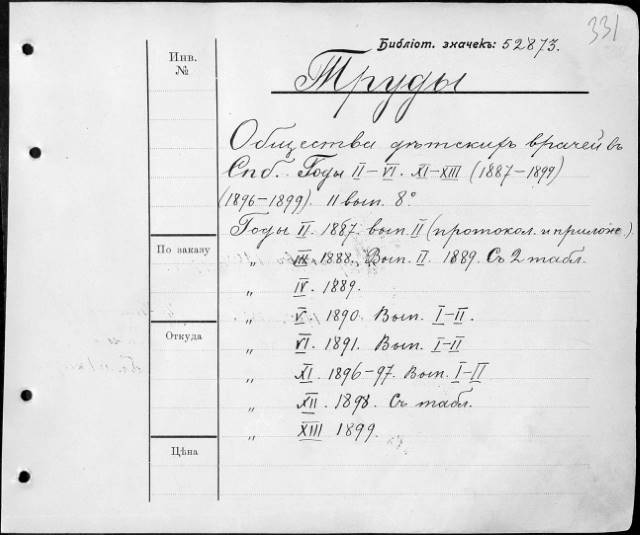 331
Библіот. значекъ: 52873.
Инв.
№
Труды
Общества дѣтскихъ врачей въ
Спб. Годы II–VI. XI–XIII (1887–1899)
(1896–1899). 11 вып. 8°
Годы II. 1887. вып. II (протокол. и прилож.)
По заказу
„ III. 1888. Вып. II. 1889. Съ 2 табл.
„ IV. 1889.
„ V. 1890. Вып. I–II.
Откуда
„ VI. 1891. Вып. I–II
„ XI. 1896–97. Вып. I–II
„ XII. 1898. Съ табл.
„ XIII 1899.
Цѣна